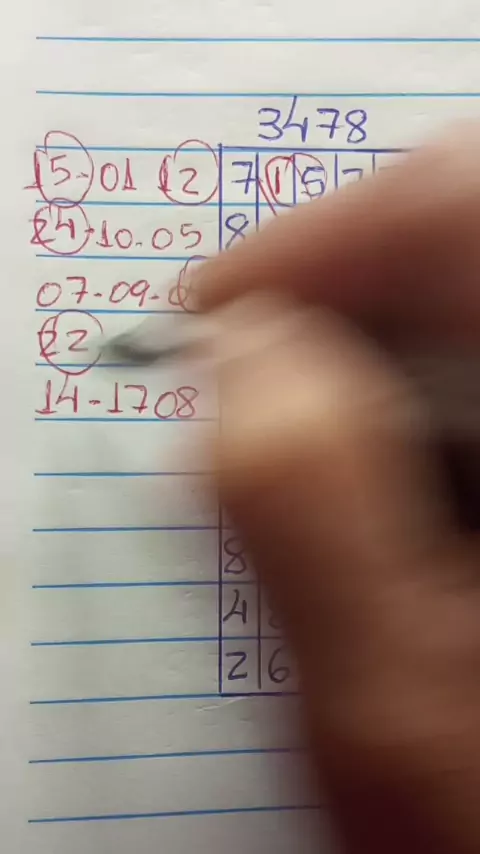 3478
15-01 12 7 1 5 7
24-10-05 8
07-09-
22
14-1708
8
4
2 6